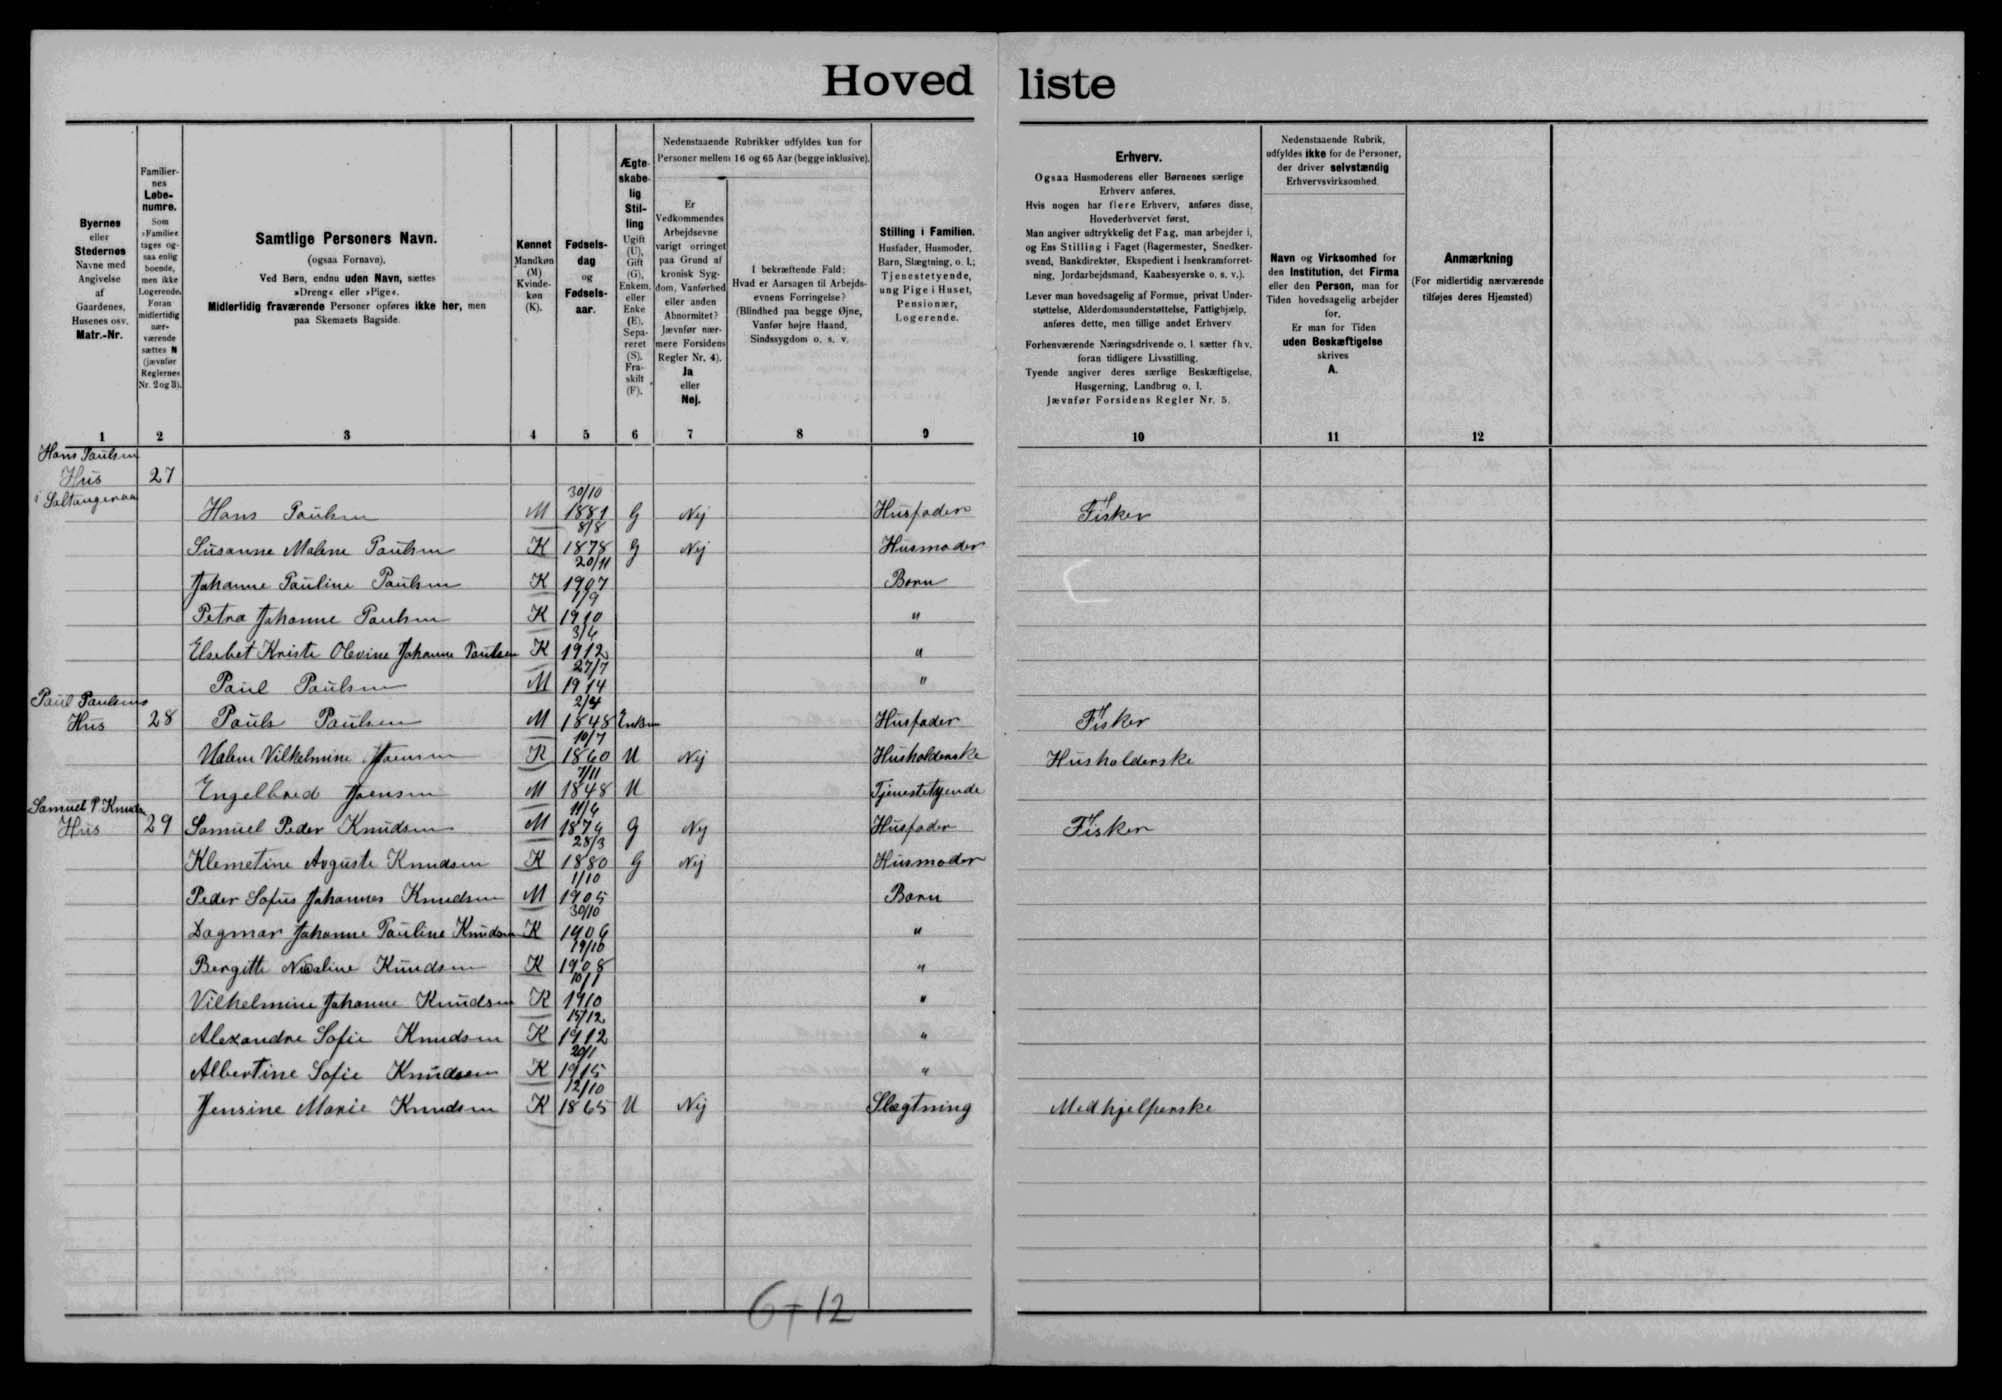 Hovedliste
Byernes
eller
Stedernes
Navne med
Angivelse
af
Gaardenes,
Husenes osv.
Matr.-Nr.
Familier-
nes
Løbe-
numre.
Som
»Familie«
tages og-
saa enlig
boende,
men ikke
Logerende.
Foran
midlertidig
nær-
værende
sættes N
(jævnfør
Reglernes
Nr. 2 og 3).
Samtlige Personers Navn.
(ogsaa Fornavn).
Ved Børn, endnu uden Navn, sættes
»Dreng« eller »Pige«.
Midlertidig fraværende Personer opføres ikke her, men
paa Skemaets Bagside.
Kønnet
Mandkøn
(M)
Kvinde-
køn
(K).
Fødsels-
dag
og
Fødsels-
aar.
Ægte-
skabe-
lig
Stil-
ling
Ugift
(U),
Gift
(G),
Enkem.
eller
Enke
(E),
Sepa-
reret
(S),
Fra-
skilt
(F).
Nedenstaaende Rubrikker udfyldes kun for
Personer mellem 16 og 65 Aar (begge inklusive).
Er
Vedkommendes
Arbejdsevne
varigt forringet
paa Grund af
kronisk Syg-
dom, Vanførhed
eller anden
Abnormitet?
Jævnfør nær-
mere Forsidens
Regler Nr. 4).
Ja
eller
Nej.
I bekræftende Fald:
Hvad er Aarsagen til Arbejds-
evnens Forringelse?
(Blindhed paa begge Øjne,
Vanfør højre Haand,
Sindssygdom o. s. v.
Stilling i Familien.
Husfader, Husmoder,
Barn, Slægtning, o. l.;
Tjenestetyende,
ung Pige i Huset,
Pensionær,
Logerende.
Erhverv.
Ogsaa Husmoderens eller Børnenes særlige
Erhverv anføres.
Hvis nogen har flere Erhverv, anføres disse,
Hovederhvervet først.
Man angiver udtrykkelig det Fag, man arbejder i,
og Ens Stilling i Faget (Bagermester, Snedker-
svend, Bankdirektør, Ekspedient i Isenkramforret-
ning, Jordarbejdsmand, Kaabesyerske o. s. v.).
Lever man hovedsagelig af Formue, privat Under-
støttelse, Alderdomsunderstøttelse, Fattighjælp,
anføres dette, men tillige andet Erhverv
Forhenværende Næringsdrivende o. l. sætter fhv.
foran tidligere Livsstilling.
Tyende angiver deres særlige Beskæftigelse,
Husgerning, Landbrug o. l.
Jævnfør Forsidens Regler Nr. 5.
Nedenstaaende Rubrik,
udfyldes ikke for de Personer,
der driver selvstændig
Erhvervsvirksomhed.
Navn og Virksomhed for
den Institution, det Firma
eller den Person, man for
Tiden hovedsagelig arbejder
for.
Er man for Tiden
uden Beskæftigelse
skrives
A.
Anmærkning
(For midlertidig nærværende
tilføjes deres Hjemsted)
1 2 3 4 5 6 7 8 9 10 11 12
Hans Paulsen
Hus 27
i Saltangeraa
Hans Paulsen M 30/10 1881 G Nej Husfader Fisker
Susanne Malene Paulsen K 8/8 1878 G Nej Husmoder
Johanne Pauline Paulsen K 20/11 1907 Barn
Petra Johanne Paulsen K 1/9 1910 "
Elsebet Kriste Olevine Johanne Paulsen K 3/6 1912 "
Paul Paulsen M 27/7 1914 "
Paul Paulsens
Hus 28 Pauls Paulsen M 2/4 1848 Enkem Husfader Fisker
Malene Vilhelmine Joensen K 10/7 1860 U Nej Husholderske Husholderske
Engelbred Joensen M 7/11 1848 U Tjenestetyende
Samuel P Knuds
Hus 29 Samuel Peder Knudsen M 11/6 1874 G Nej Husfader Fisker
Klemetine Avguste Knudsen K 28/3 1880 G Nej Husmoder
Peder Sofus Johannes Knudsen M 1/10 1905 Barn
Dagmar Johanne Pauline Knudsen K 30/10 1906 "
Bergitte Nicoline Knudsen K 19/10 1908 "
Vilhelmine Johanne Knudsen K 10/1 1910 "
Alexandre Sofie Knudsen K 15/12 1912 "
Albertine Sofie Knudsen K 20/1 1915 "
Jensine Marie Knudsen K 12/10 1865 U Nej Slægtning Medhjelperske
6+12